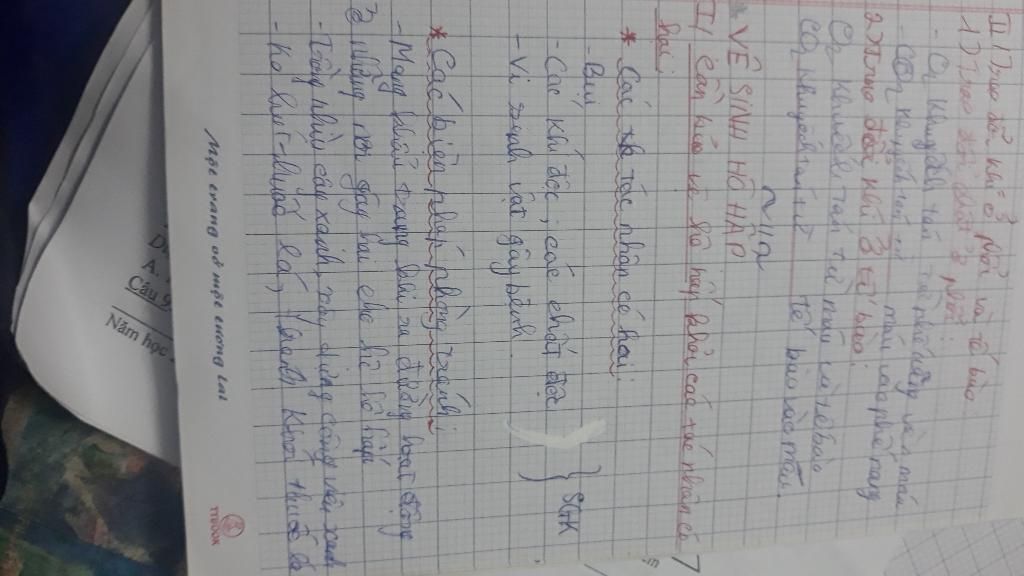 II/ Trao đổi khí ở phổi và tế bào
1) Trao đổi khí ở phổi:
- O2 khuyếch tán từ phế nang vào máu
- CO2 khuyếch tán từ máu vào phế nang
2. Trao đổi khí ở tế bào:
O2 khuyếch tán từ máu vào tế bào
CO2 khuyếch tán từ tế bào vào máu.
* VỆ SINH HÔ HẤP
I/ Cần bảo vệ hô hấp khỏi các tác nhân có
hại:
* Các tác nhân có hại:
- Bụi
- Các khí độc, các chất độc
- Vi sinh vật gây bệnh.
SGK
* Các biện pháp phòng tránh:
- Mang khẩu trang khi ra đường hoạt động
ở những nơi gây hại cho hệ hô hấp
- Trồng nhiều cây xanh, xây dựng công viên xanh
- Ko hút thuốc lá, tránh khói thuốc lá
Một trang vở một tương lai
TTBOOK
Câu 9
A.
Năm học